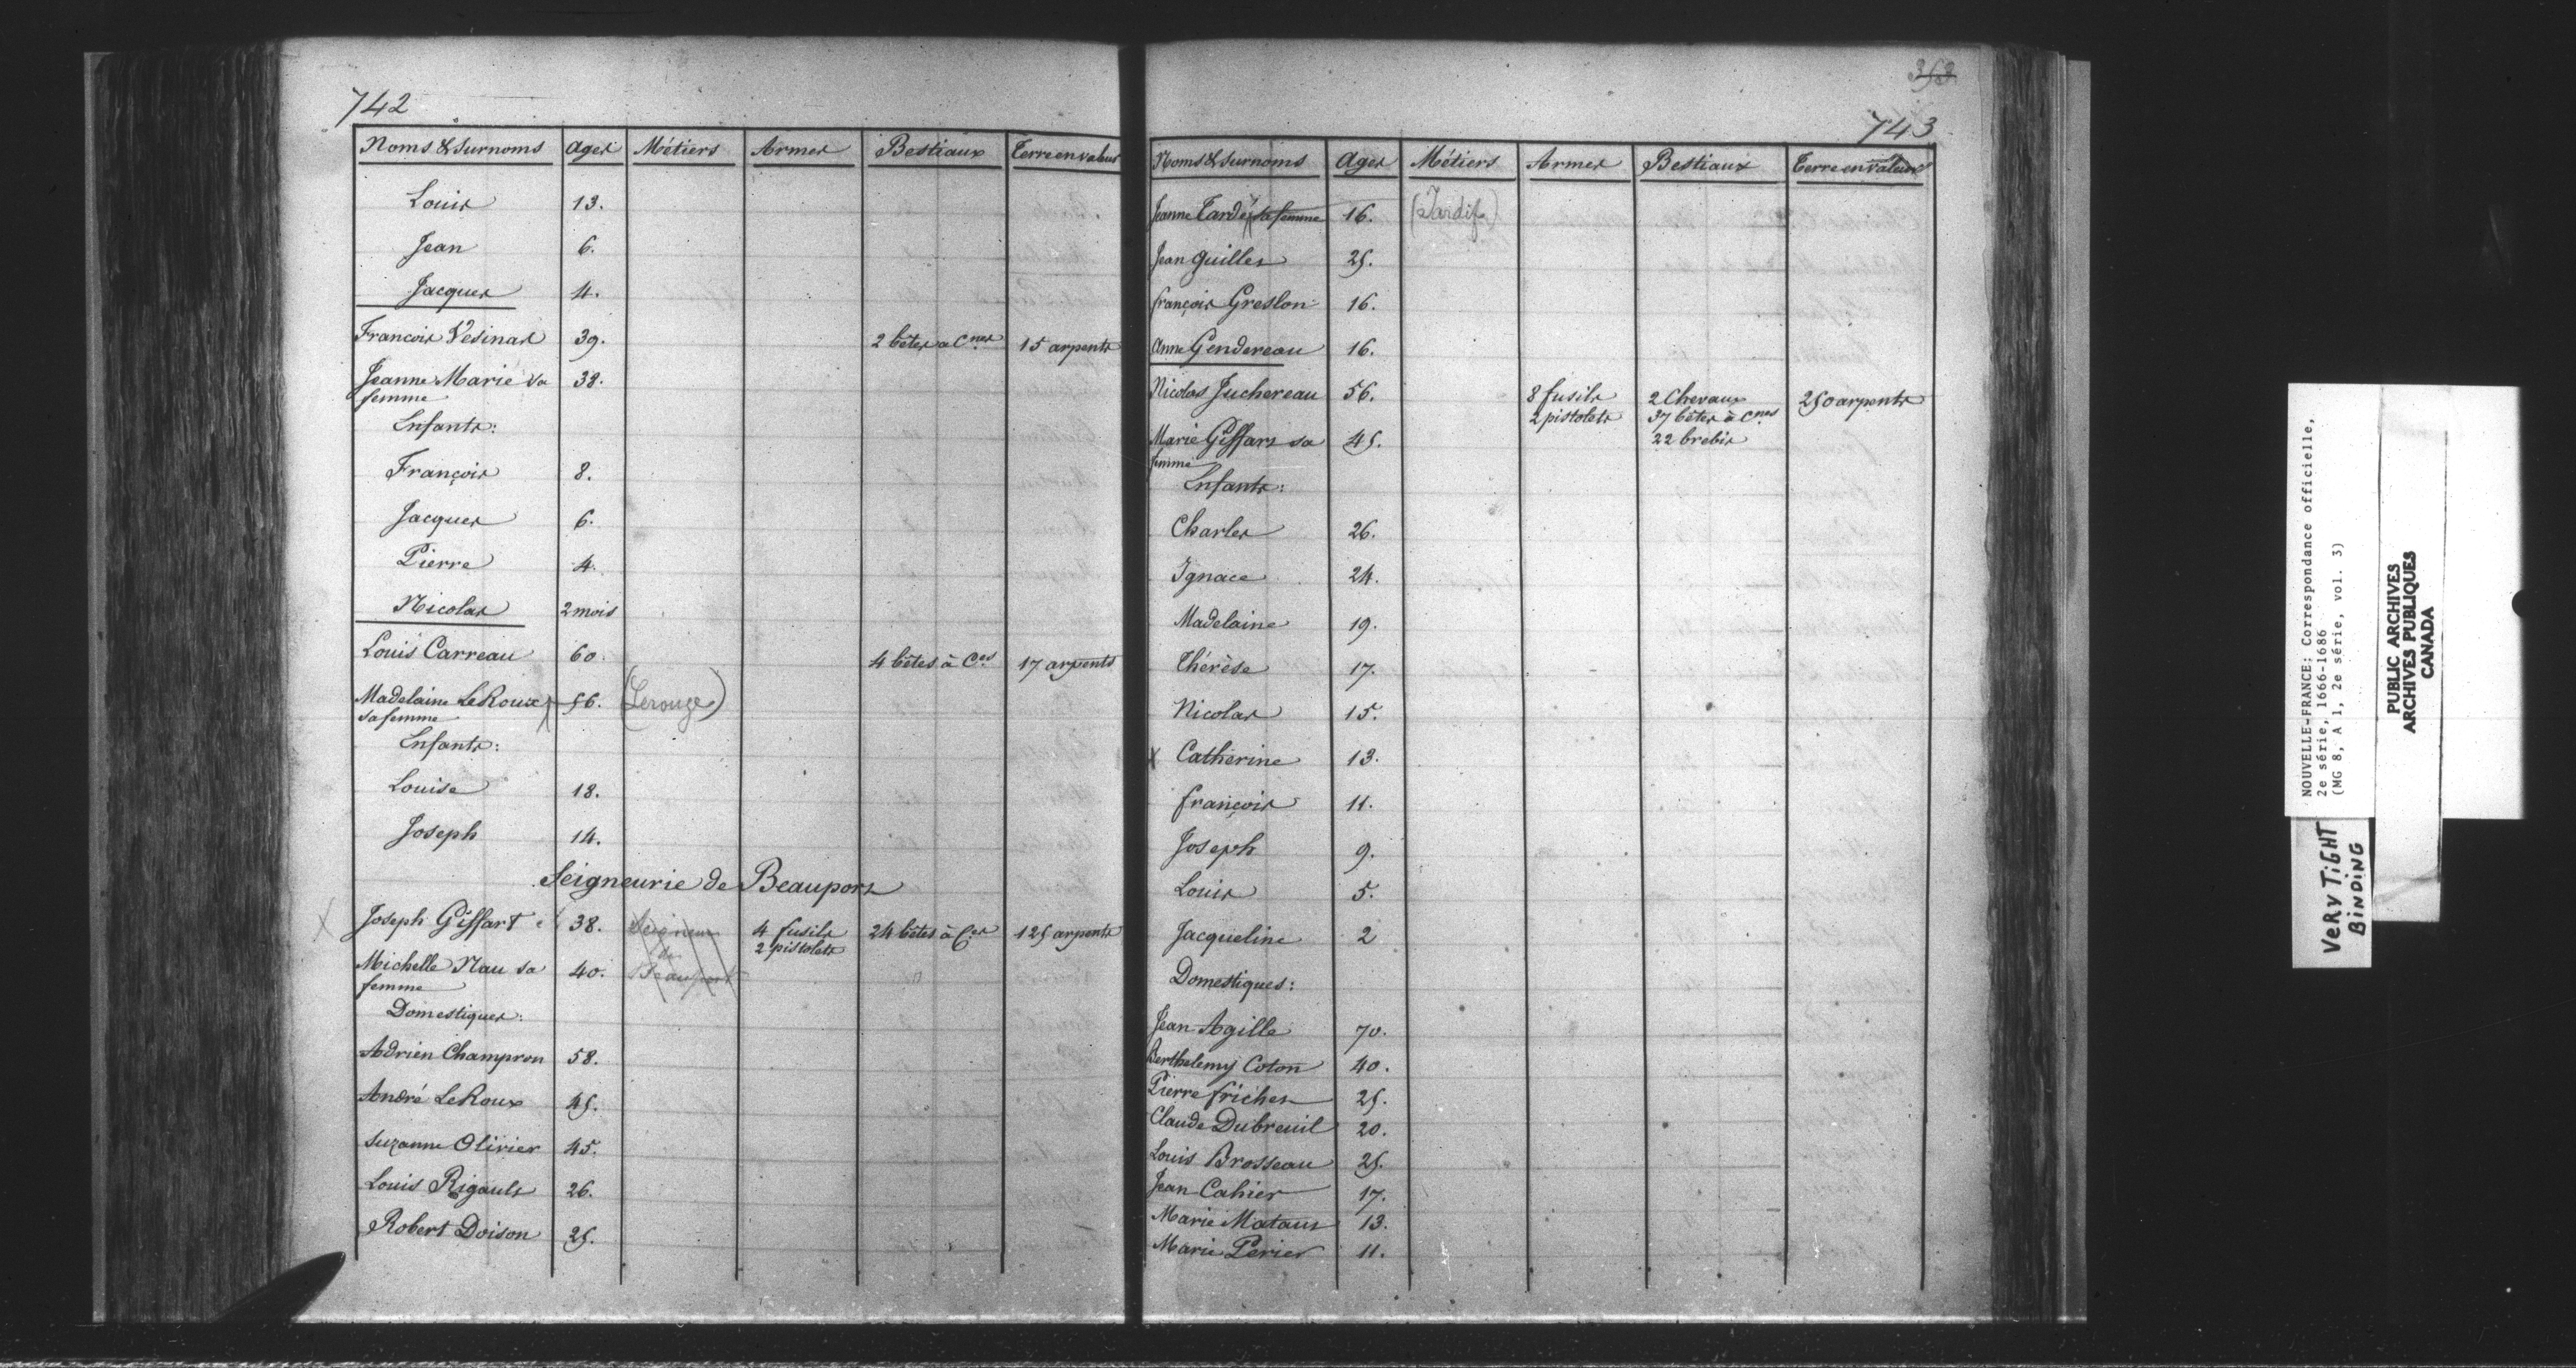 742
Noms & Surnoms Ages Métiers Armes Bestiaux Terre en valeur
Louis 13.
Jean 6.
Jacques 4.
Francois Vesinas 39. 2 bêtes a Cnes 15 arpents
Jeanne Marie sa 38.
femme
Enfants:
François 8.
Jacques 6.
Pierre 4.
Nicolas 2 mois
Louis Carreau 60. 4 bêtes à Ces 17 arpents
Madelaine LeRoux 56. (Lerouge)
sa femme
Enfants:
Louise 18.
Joseph 14.
Seigneurie de Beauport
X Joseph Giffart 38. Seigneur 4 fusils 24 bêtes à Ces 125 arpents
de 2 pistolets
Michelle Nau sa 40. Beauport
femme
Domestiques:
Adrien Champron 58.
André LeRoux 45.
Suzanne Olivier 45.
Louis Rigault 26.
Robert Doison 25.
353
743
Noms & Surnoms Ages Métiers Armes Bestiaux Terre en valeur
Jeanne Tardé sa femme 16. (Tardif)
Jean Guillet 25.
françois Greslon 16.
Anne Gendereau 16.
Nicolas Juchereau 56. 8 fusils 2 Chevaux 250 arpents
2 pistolets 37 bêtes à Cnes
Marie Giffart sa 45. 22 brebis
femme
Enfants:
Charles 26.
Ignace 24.
Madelaine 19.
Thérèse 17.
Nicolas 15.
X Catherine 13.
françois 11.
Joseph 9.
Louis 5.
Jacqueline 2
Domestiques:
Jean Agille 70.
Berthelemy Coton 40.
Pierre frichet 25.
Claude Dubreuil 20.
Louis Brosseau 25.
Jean Cahier 17.
Marie Mataut 13.
Marie Perier 11.
NOUVELLE-FRANCE: Correspondance officielle,
2e série, 1666-1686
(MG 8, A 1, 2e série, vol. 3)
PUBLIC ARCHIVES
ARCHIVES PUBLIQUES
CANADA
VERY TIGHT
BINDING